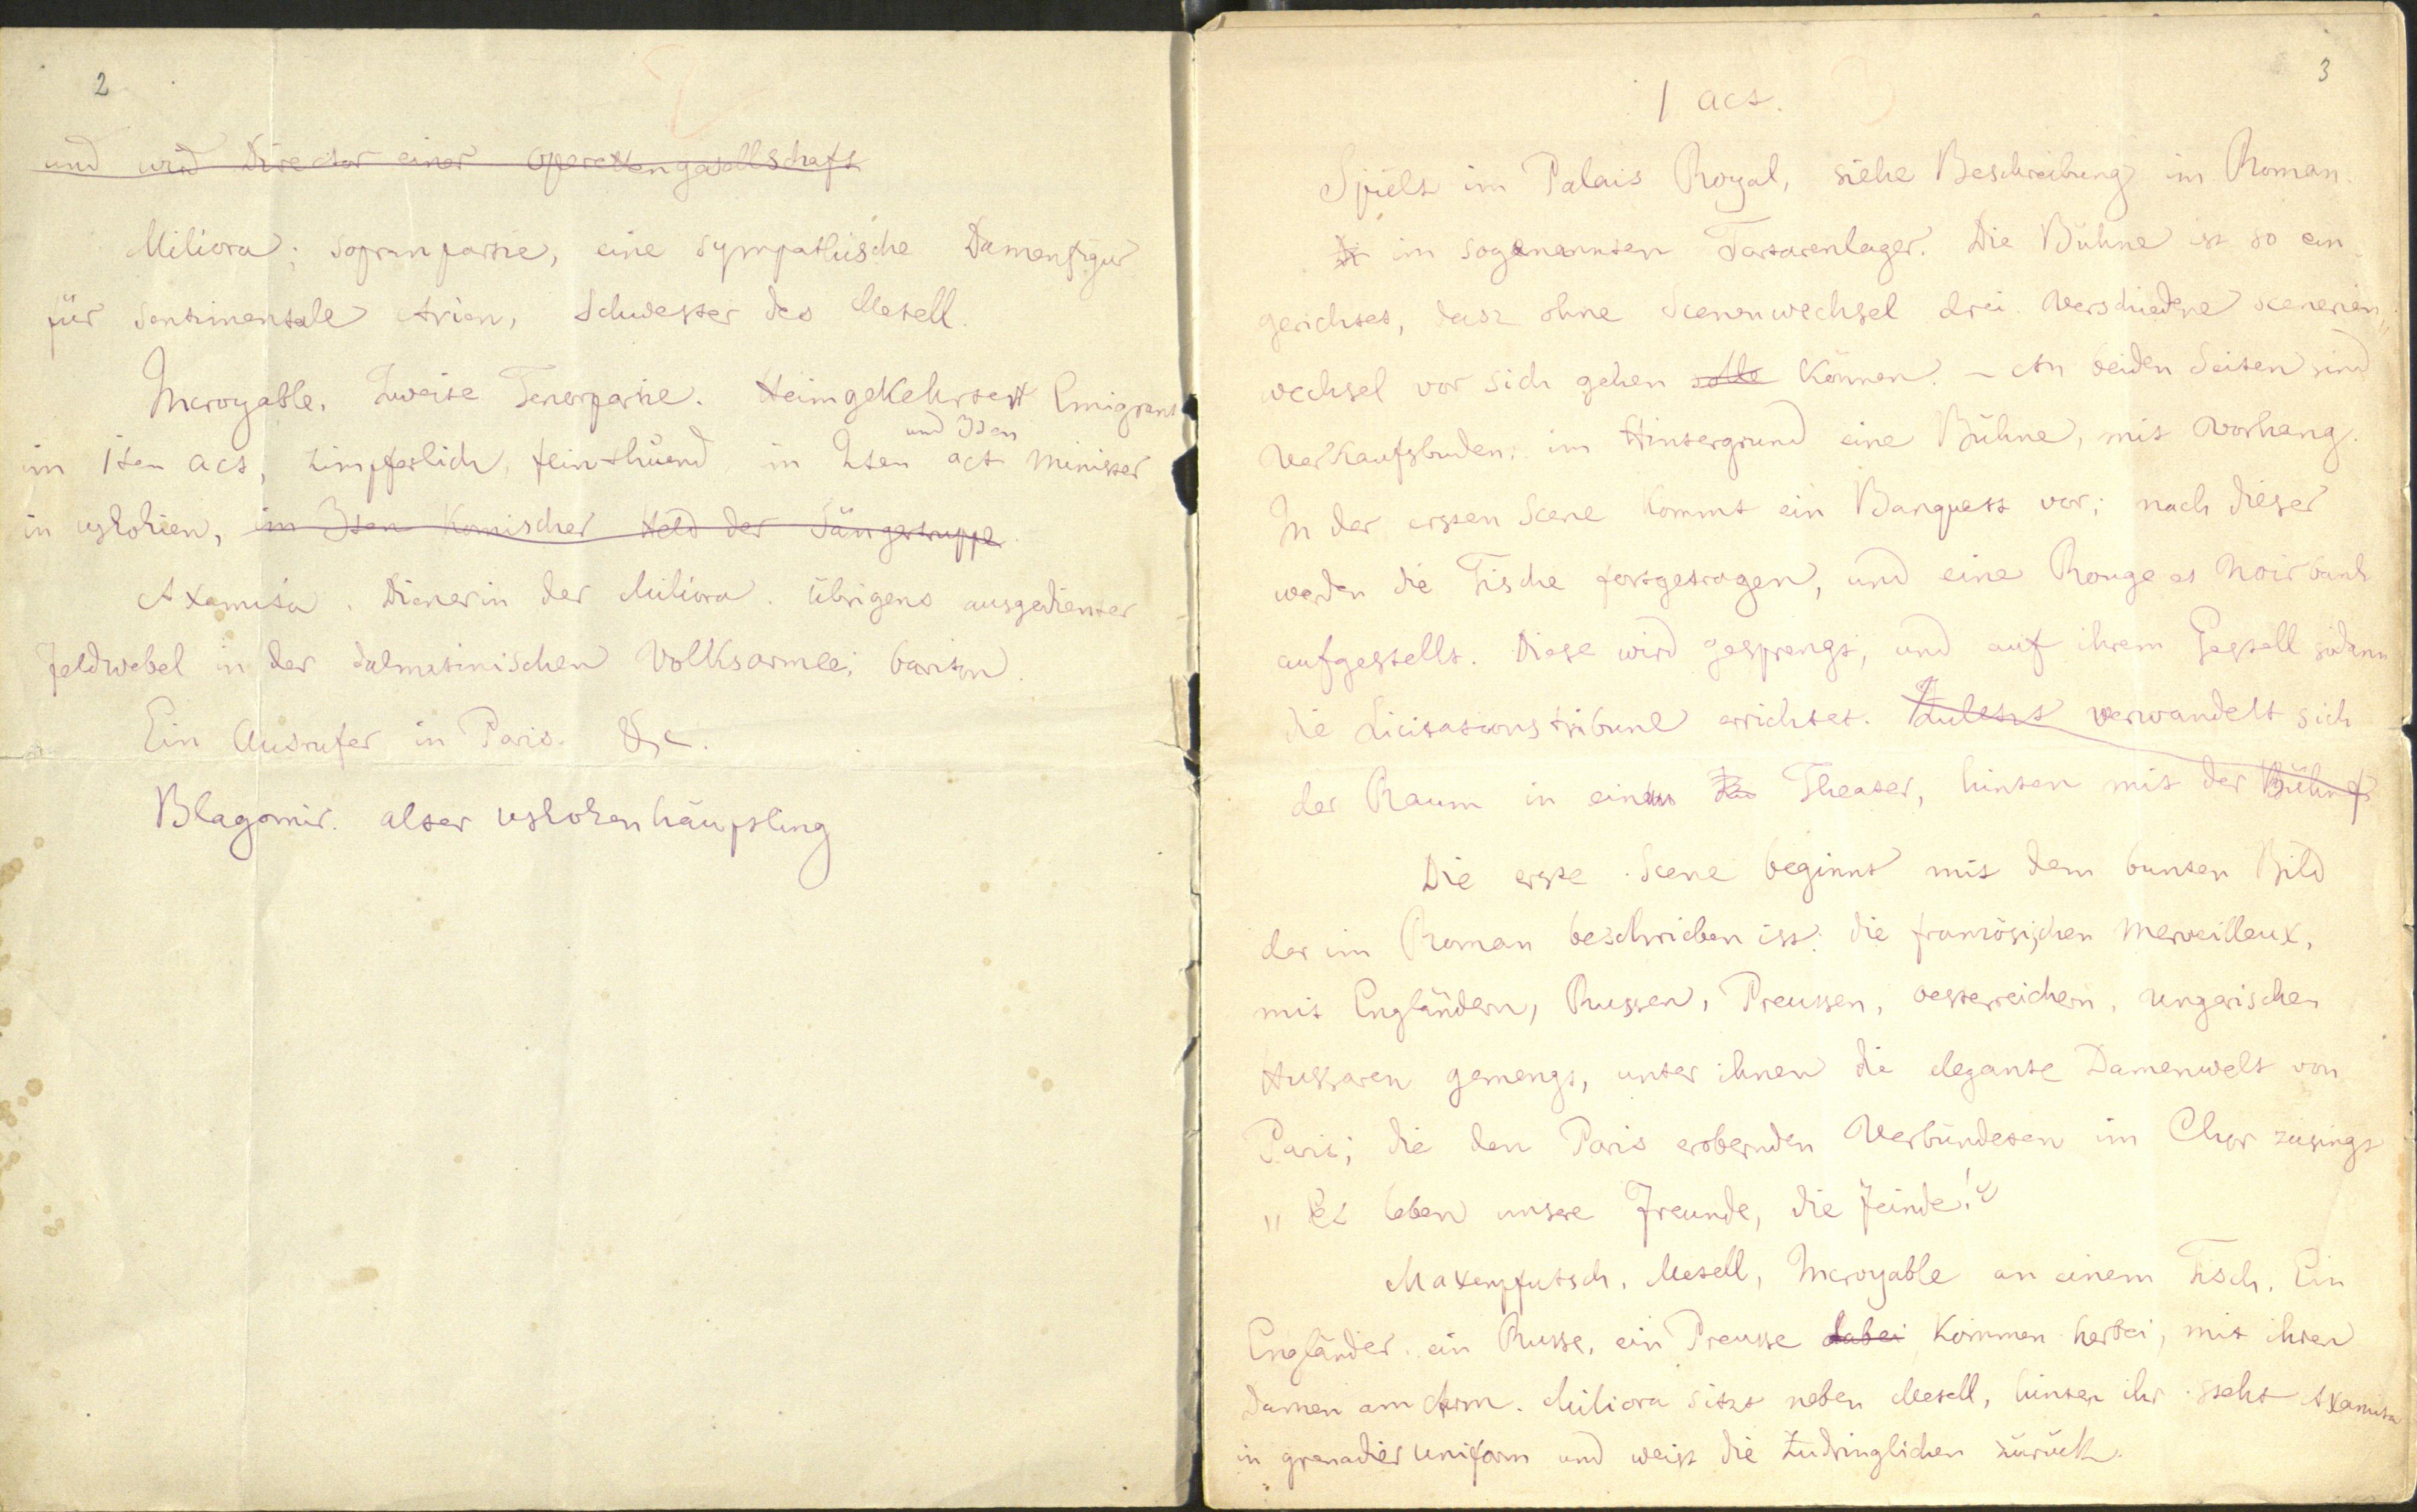 2
und wird Director einer Operettengesellschaft
Miliora; Sopranpartie, eine sympathische Damenfigur
für sentimentale Arien, Schwester des Metell.
Incroyable, Zweite Tenorpartie. Heimgekehrter Emigrant
und 3ten
im 1ten act, zimpferlich, feinthuend in 2ten act Minister
in uskokien, im 3ten komischer Held der Sängertruppe.
Axamita. Dienerin der Miliora. übrigens ausgedienter
Feldwebel in der dalmatinischen Volksarmee; bariton.
Ein Ausrufer in Paris. &c.
Blagomir. alter uskokenhäuptling
3
1 act.
Spielt im Palais Royal, siehe Beschreibung im Roman.
im sogenannten Tartarenlager. Die Bühne ist so ein
gerichtet, dasz ohne Scenenwechsel drei verschiedene scenerien
wechsel vor sich gehen können. – An beiden Seiten sind
Verkaufsbuden, im Hintergrund eine Bühne, mit Vorhang.
In der ersten Scene kommt ein Banquett vor; nach dieser
werden die Tische fortgetragen, und eine Rouge et noir bank
aufgestellt. Diese wird gesprengt, und auf ihrem Gestell sodann
die Licitationstribune errichtet. Zuletzt verwandelt sich
der Raum in ein Theater, hinten mit der Bühne
Die erste Scene beginnt mit dem bunten Bild
der im Roman beschrieben ist: die französischen Merveilleux,
mit Engländern, Russen, Preussen, oesterreichern, ungarischen
Hussaren gemengt, unter ihnen die elegante Damenwelt von
Paris; die den Paris erobernden Verbündeten im Chor zusingt
„Es leben unsere Freunde, die Feinde!"
Maxenpfutsch, Metell, Incroyable an einem Tisch. Ein
Engländer. ein Russe, ein Preusse dabei kommen herbei, mit ihren
Damen am Arm. Miliora sitzt neben Metell, hinter ihr steht Axamita
in grenadier uniform und weist die Zudringlichen zurück.